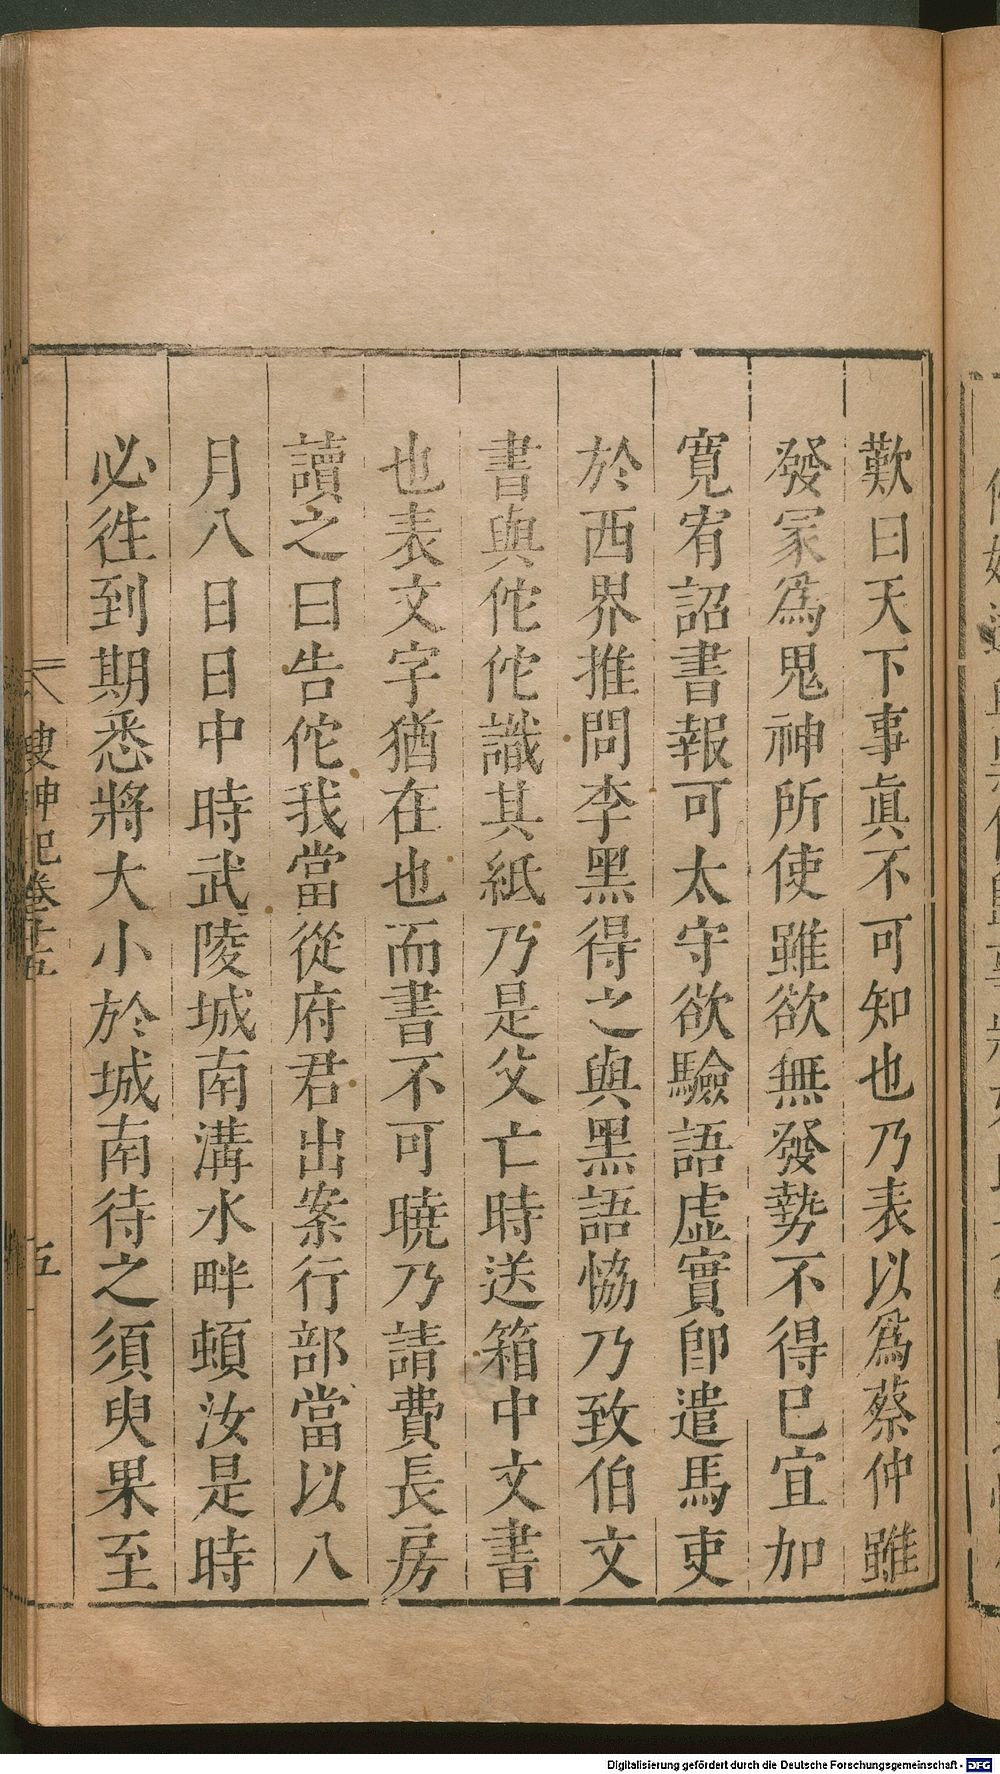 歎曰天下事眞不可知也乃表以爲蔡仲雖
發冢爲鬼神所使雖欲無發勢不得已宜加
寛宥詔書報可太守欲驗語虚實卽遣馬吏
於西界推問李黑得之與黑語恊乃致伯文
書與佗佗識其紙乃是父亡時送箱中文書
也表文字猶在也而書不可曉乃請費長房
讀之曰告佗我當從府君出案行部當以八
月八日日中時武陵城南溝水畔頓汝是時
必徃到期悉將大小於城南待之須臾果至
搜神記卷十五
五
Digitalisierung gefördert durch die Deutsche Forschungsgemeinschaft - DFG